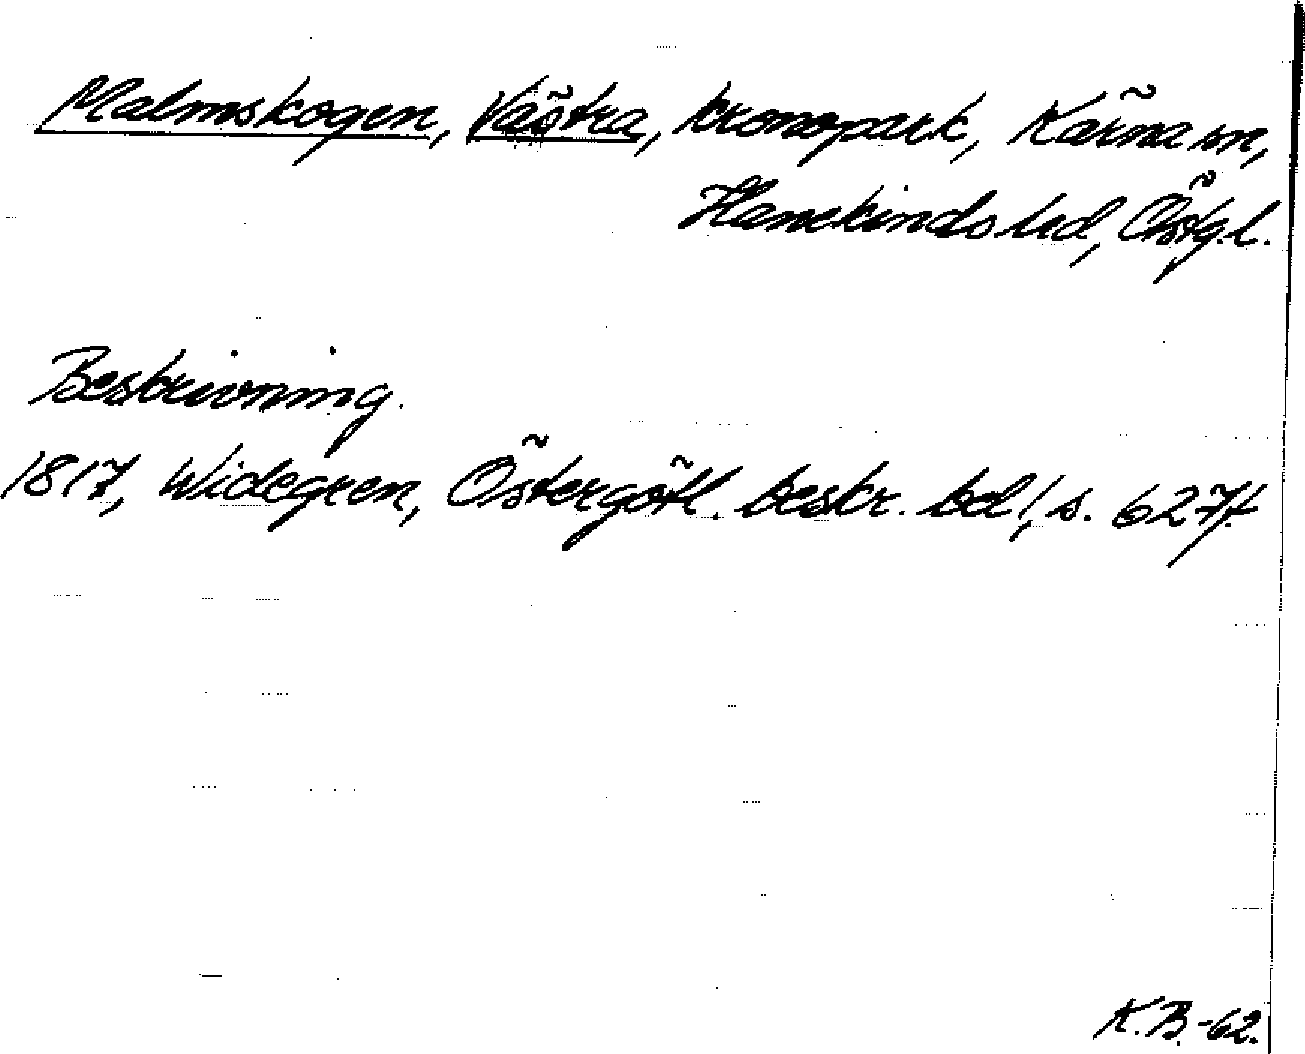 Malmskogen, Västra, kronopark, Kärna sn,
Hanekinds hd, Östgl.
Beskrivning.
1817, Widegren, Östergötl. beskr. bd 1, s. 627f.
K.B.-62.